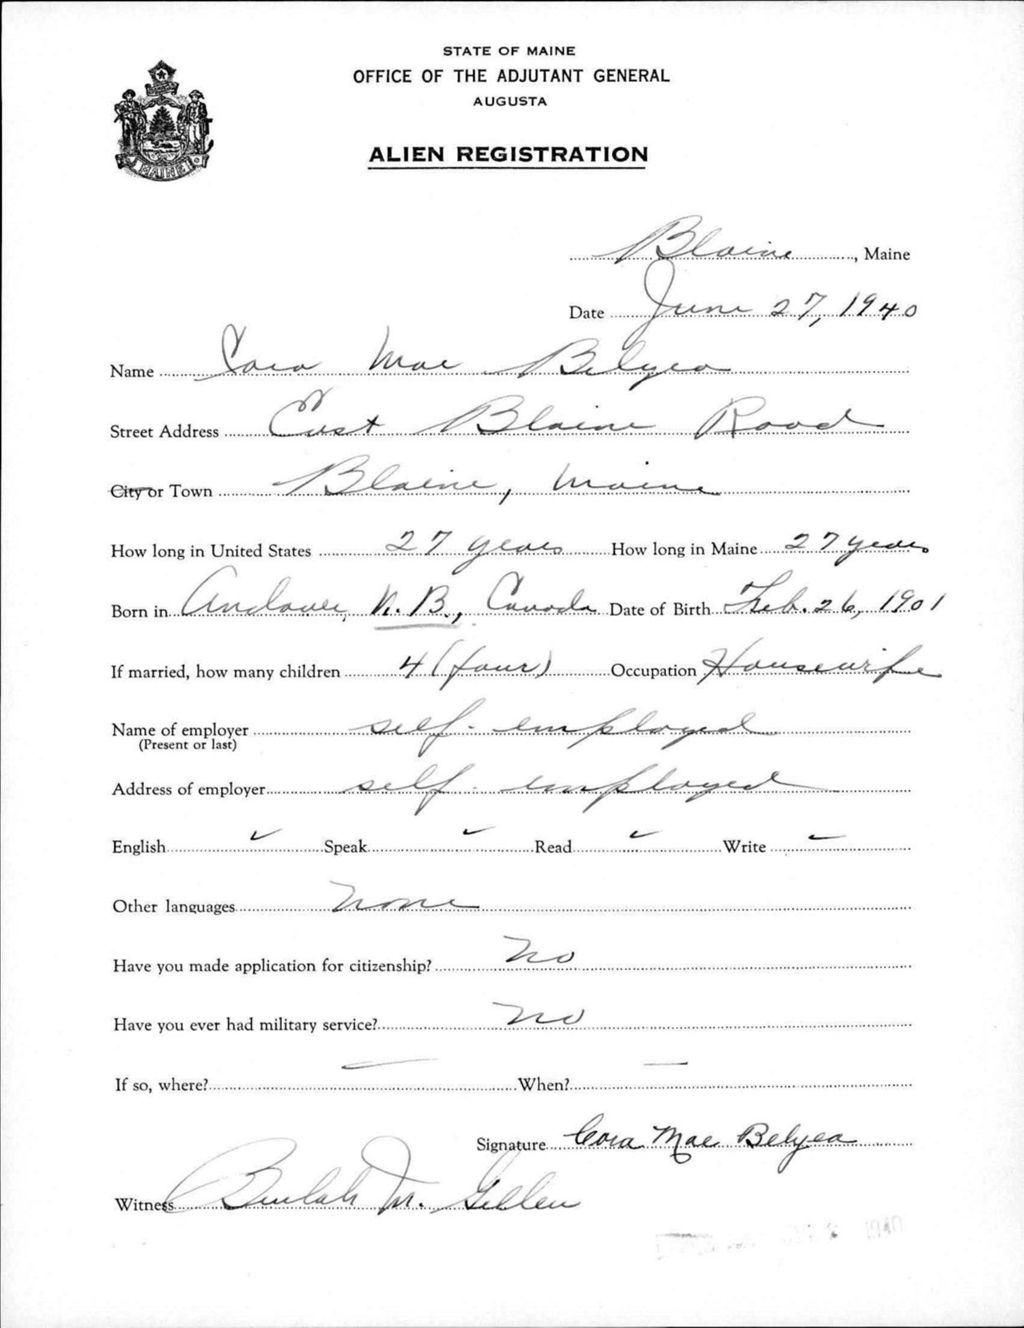 STATE OF MAINE
OFFICE OF THE ADJUTANT GENERAL
AUGUSTA
ALIEN REGISTRATION
MAINE
Blaine, Maine
Date June 27, 1940
Name Cora Mae Belyea
Street Address East Blaine Road
City or Town Blaine, Maine
How long in United States 27 years How long in Maine 27 years
Born in Andover, N.B., Canada Date of Birth Feb. 26, 1901
If married, how many children 4 (four) Occupation Housewife
Name of employer self-employed
(Present or last)
Address of employer self-employed
English ✓ Speak ✓ Read ✓ Write ✓
Other languages none
Have you made application for citizenship? no
Have you ever had military service? no
If so, where? — When? —
Signature Cora Mae Belyea
Witness Beulah M.